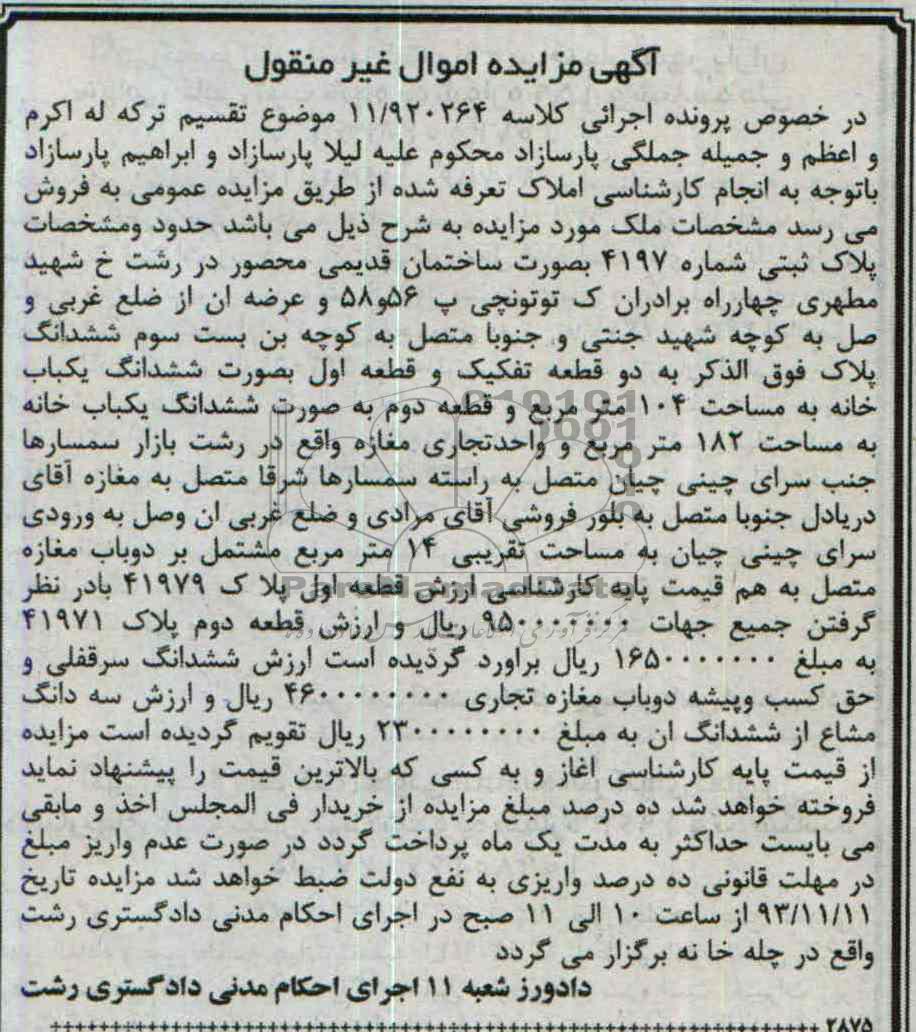 آگهی مزایده اموال غیر منقول
در خصوص پرونده اجرائی کلاسه ۱۱/۹۲۰۲۶۴ موضوع تقسیم ترکه له اکرم
و اعظم و جمیله جملگی پارسازاد محکوم علیه لیلا پارسازاد و ابراهیم پارسازاد
باتوجه به انجام کارشناسی املاک تعرفه شده از طریق مزایده عمومی به فروش
می رسد مشخصات ملک مورد مزایده به شرح ذیل می باشد حدود ومشخصات
پلاک ثبتی شماره ۴۱۹۷ بصورت ساختمان قدیمی محصور در رشت خ شهید
مطهری چهارراه برادران ک توتونچی پ ۵۶و۵۸ و عرضه ان از ضلع غربی و
صل به کوچه شهید جنتی و جنوبا متصل به کوچه بن بست سوم ششدانگ
پلاک فوق الذکر به دو قطعه تفکیک و قطعه اول بصورت ششدانگ یکباب
خانه به مساحت ۱۰۴ متر مربع و قطعه دوم به صورت ششدانگ یکباب خانه
به مساحت ۱۸۲ متر مربع و واحدتجاری مغازه واقع در رشت بازار سمسارها
جنب سرای چینی چیان متصل به راسته سمسارها شرقا متصل به مغازه آقای
دریادل جنوبا متصل به بلور فروشی آقای مرادی و ضلع غربی ان وصل به ورودی
سرای چینی چیان به مساحت تقریبی ۱۴ متر مربع مشتمل بر دوباب مغازه
متصل به هم قیمت پایه کارشناسی ارزش قطعه اول پلا ک ۴۱۹۷۹ بادر نظر
گرفتن جمیع جهات ۹۵۰۰۰۰۰۰۰۰ ریال و ارزش قطعه دوم پلاک ۴۱۹۷۱
به مبلغ ۱۶۵۰۰۰۰۰۰۰۰ ریال براورد گردیده است ارزش ششدانگ سرقفلی و
حق کسب وپیشه دوباب مغازه تجاری ۴۶۰۰۰۰۰۰۰۰۰ ریال و ارزش سه دانگ
مشاع از ششدانگ ان به مبلغ ۲۳۰۰۰۰۰۰۰۰۰ ریال تقویم گردیده است مزایده
از قیمت پایه کارشناسی اغاز و به کسی که بالاترین قیمت را پیشنهاد نماید
فروخته خواهد شد ده درصد مبلغ مزایده از خریدار فی المجلس اخذ و مابقی
می بایست حداکثر به مدت یک ماه پرداخت گردد در صورت عدم واریز مبلغ
در مهلت قانونی ده درصد واریزی به نفع دولت ضبط خواهد شد مزایده تاریخ
۹۳/۱۱/۱۱ از ساعت ۱۰ الی ۱۱ صبح در اجرای احکام مدنی دادگستری رشت
واقع در چله خا نه برگزار می گردد
دادورز شعبه ۱۱ اجرای احکام مدنی دادگستری رشت
۲۸۷۵